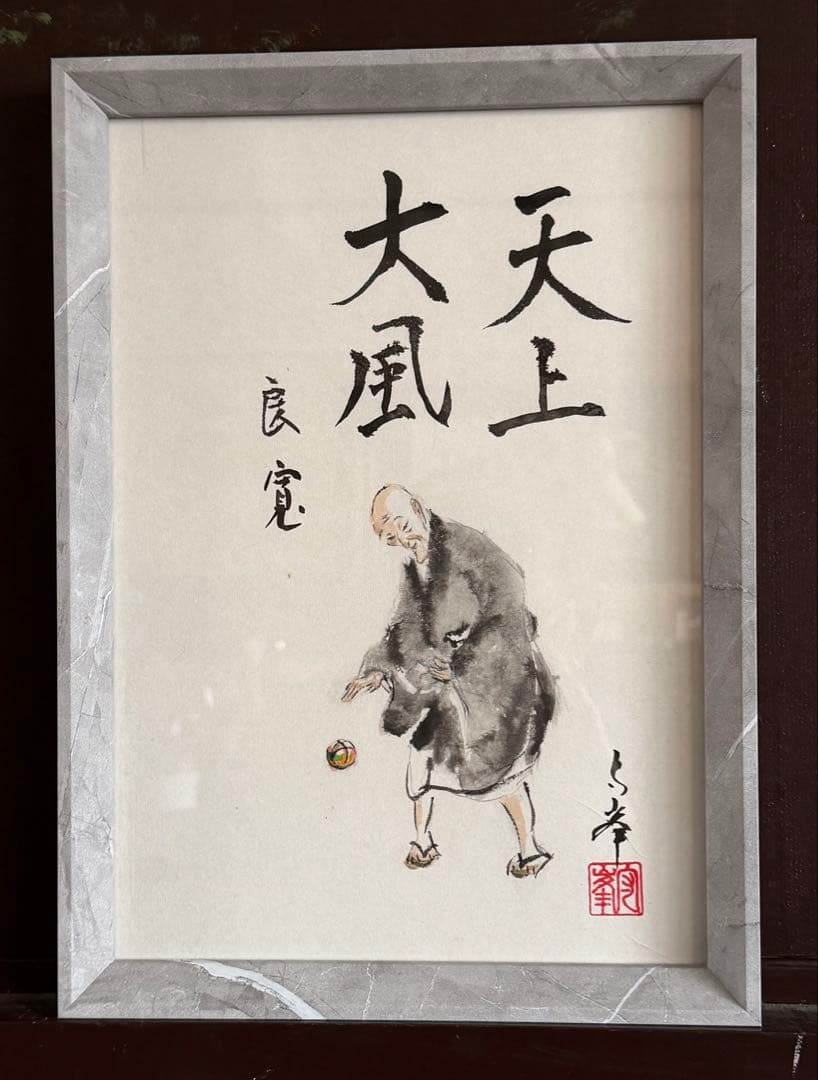 天上
大風
良寛